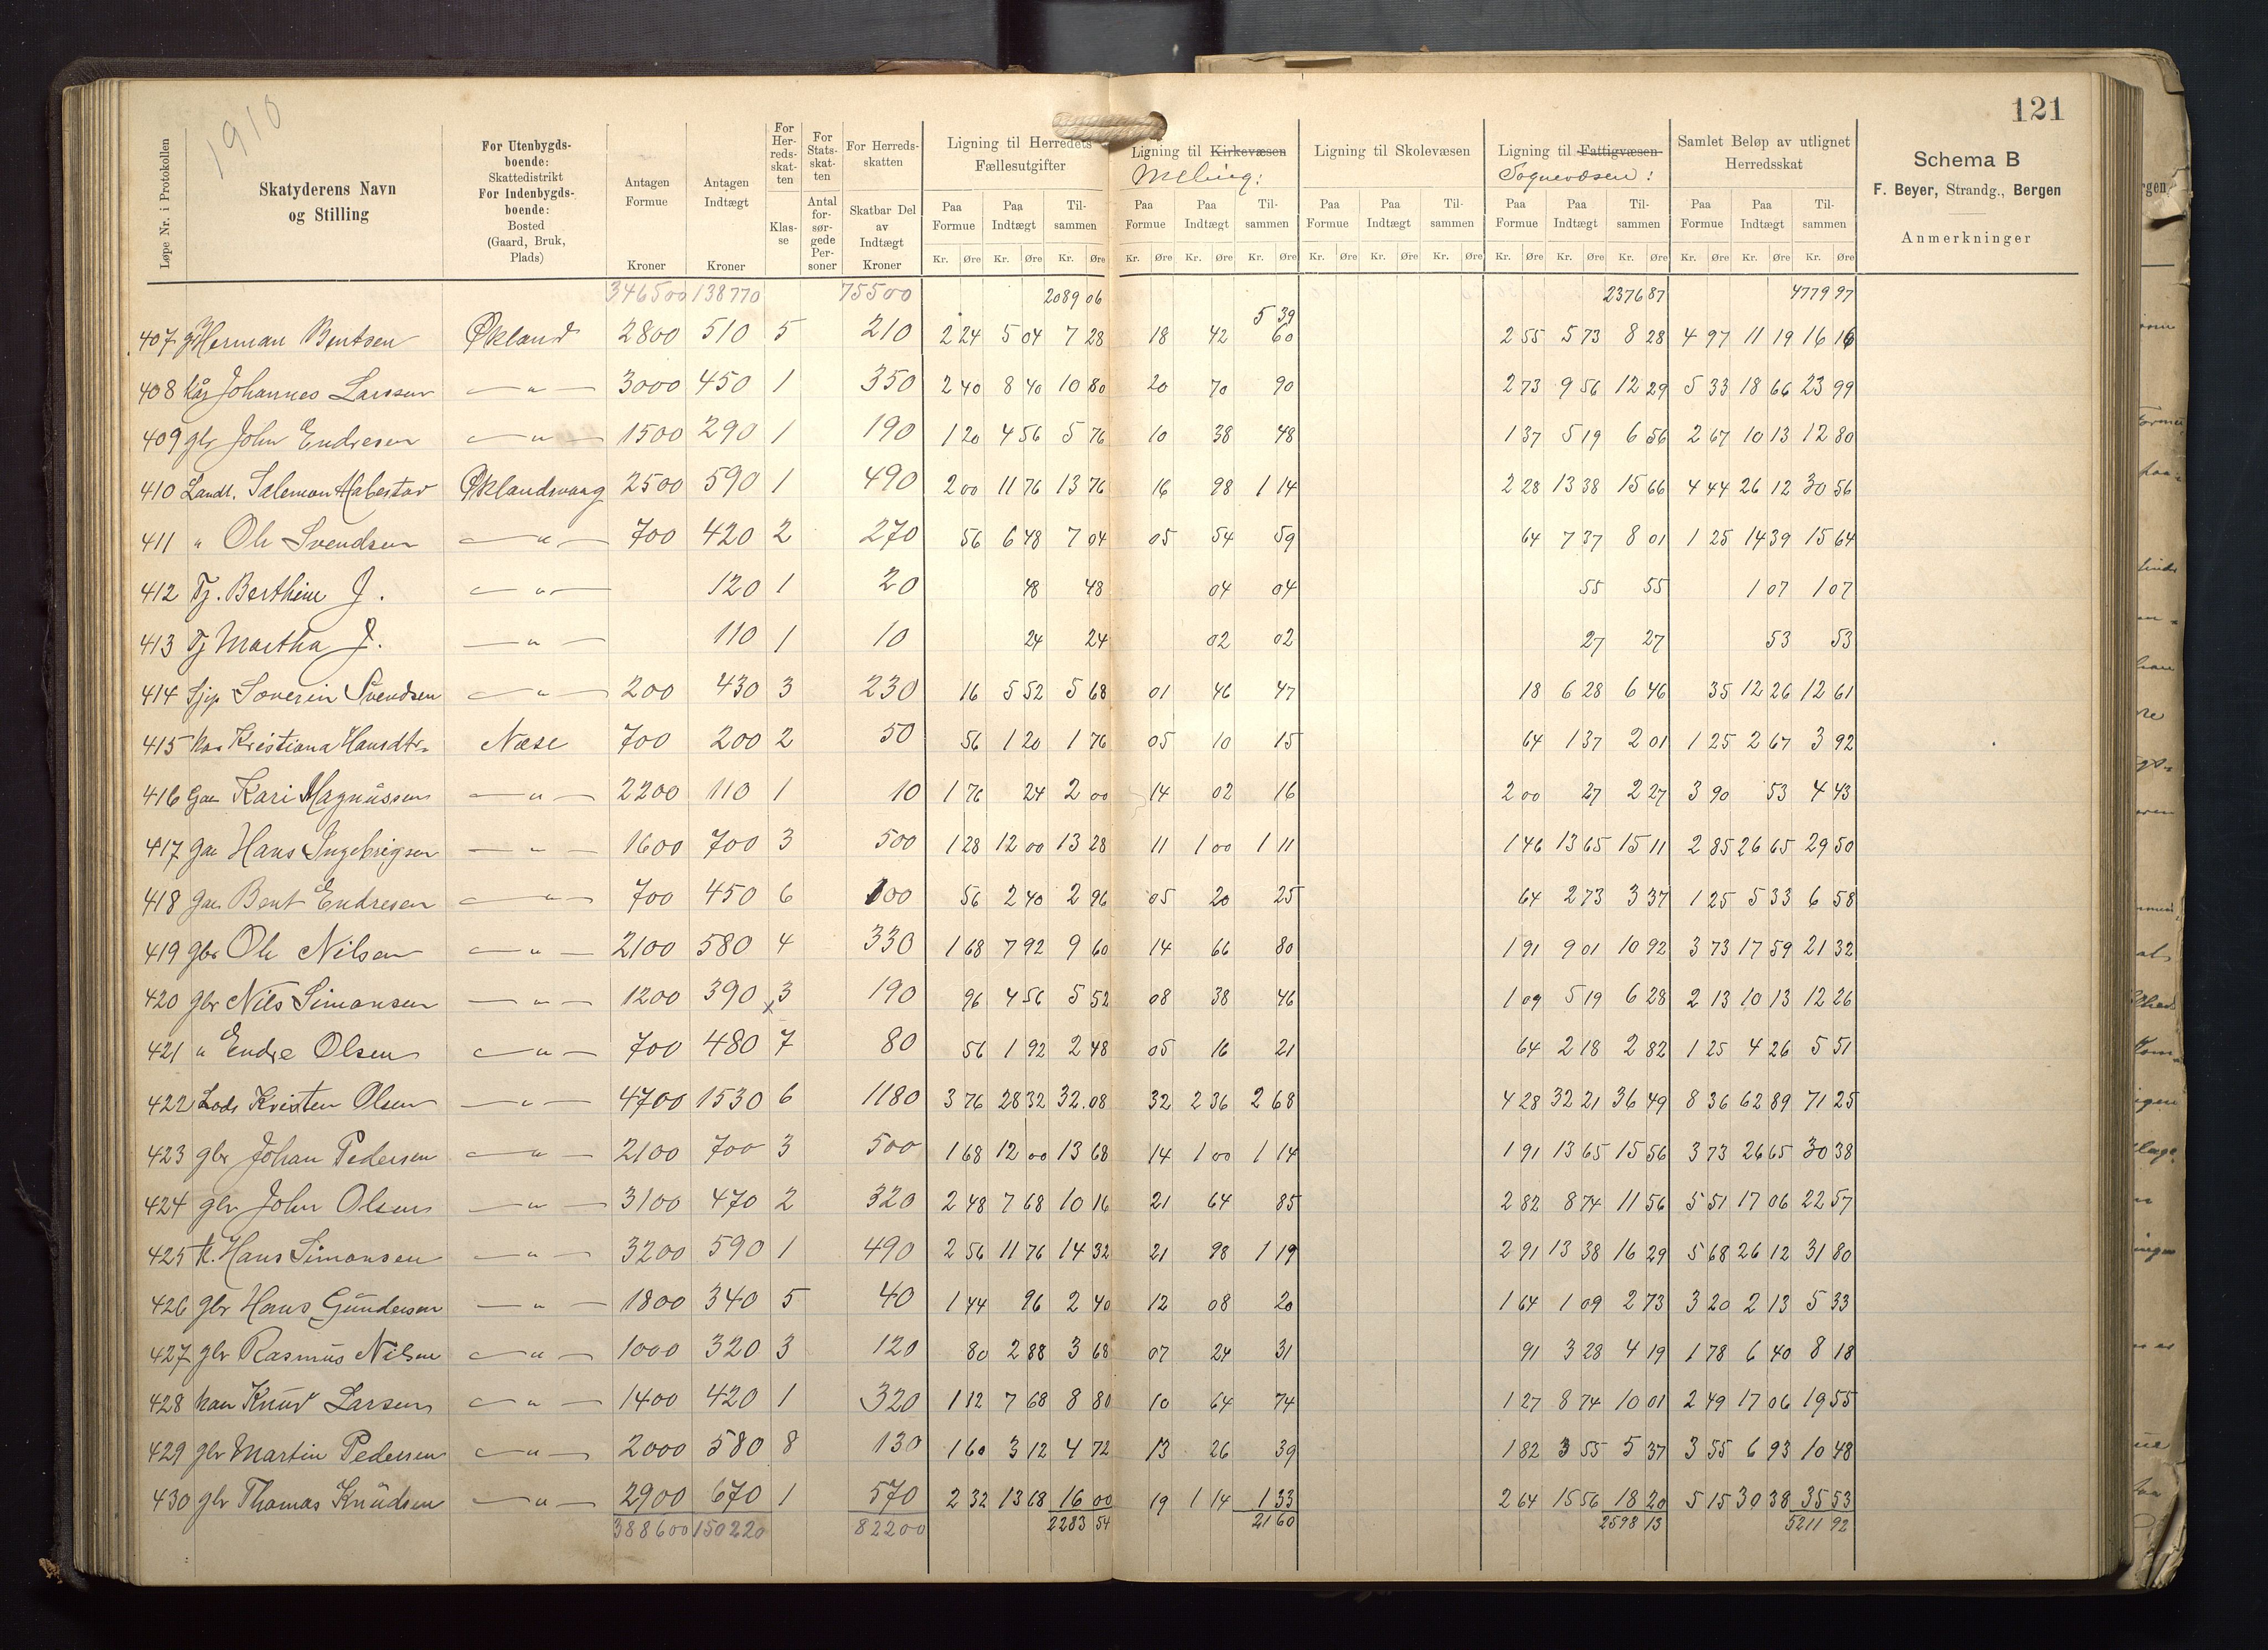 1910
121
Løpe Nr. i Protokollen
Skatyderens Navn og Stilling
For Utenbygdsboende: Skattedistrikt For Indenbygdsboende: Bosted (Gaard, Bruk, Plads)
Antagen Formue Kroner
Antagen Indtægt Kroner
For Herredsskatten Klasse
For Statsskatten Antal forsørgede Personer
For Herredsskatten Skatbar Del av Indtægt Kroner
Ligning til Herredets Fællesutgifter Paa Formue Paa Indtægt Tilsammen Kr. Øre Kr. Øre Kr. Øre
Ligning til Kirkevæsen Paa Formue Paa Indtægt Tilsammen Kr. Øre Kr. Øre Kr. Øre
Ligning til Skolevæsen Paa Formue Paa Indtægt Tilsammen Kr. Øre Kr. Øre Kr. Øre
Ligning til Fattigvæsen Sognevæsen: Paa Formue Paa Indtægt Tilsammen Kr. Øre Kr. Øre Kr. Øre
Samlet Beløp av utlignet Herredsskat Paa Formue Paa Indtægt Tilsammen Kr. Øre Kr. Øre Kr. Øre
Schema B
F. Beyer, Strandg., Bergen
Anmerkninger
346500 138770 75500 2089 06 5 39 2376 87 4779 97
407 Herman Bentsen Økland 2800 510 5 210 2 24 5 04 7 28 18 42 60 2 55 5 73 8 28 4 97 11 19 16 16
408 kår Johannes Larsen —"— 3000 450 1 350 2 40 8 40 10 80 20 70 90 2 73 9 56 12 29 5 33 18 66 23 99
409 gbr John Endresen —"— 1500 290 1 190 1 20 4 56 5 76 10 38 48 1 37 5 19 6 56 2 67 10 13 12 80
410 Landh. Salemon Habestad Øklandsvaag 2500 590 1 490 2 00 11 76 13 76 16 98 1 14 2 28 13 38 15 66 4 44 26 12 30 56
411 " Ole Svendsen —"— 700 420 2 270 56 6 48 7 04 05 54 59 64 7 37 8 01 1 25 14 39 15 64
412 Tj. Berthine J. —"— 120 1 20 48 48 04 04 55 55 1 07 1 07
413 Tj Martha J. —"— 110 1 10 24 24 02 02 27 27 53 53
414 Sjø Soverin Svendsen —"— 200 430 3 230 16 5 52 5 68 01 46 47 18 6 28 6 46 35 12 26 12 61
415 kar Kristiana Hansdtr. Næse 700 200 2 50 56 1 20 1 76 05 10 15 64 1 37 2 01 1 25 2 67 3 92
416 Gae Kari Magnussen —"— 2200 110 1 10 1 76 24 2 00 14 02 16 2 00 27 2 27 3 90 53 4 43
417 gae Hans Ingebrigsen —"— 1600 700 3 500 1 28 12 00 13 28 11 1 00 1 11 1 46 13 65 15 11 2 85 26 65 29 50
418 gae Bent Endresen —"— 700 450 6 100 56 2 40 2 96 05 20 25 64 2 73 3 37 1 25 5 33 6 58
419 gbr Ole Nilsen —"— 2100 580 4 330 1 68 7 92 9 60 14 66 80 1 91 9 01 10 92 3 73 17 59 21 32
420 gbr Nils Simonsen —"— 1200 390 x3 190 96 4 56 5 52 08 38 46 1 09 5 19 6 28 2 13 10 13 12 26
421 " Endre Olsen —"— 700 480 7 80 56 1 92 2 48 05 16 21 64 2 18 2 82 1 25 4 26 5 51
422 Lods Kristen Olsen —"— 4700 1530 6 1180 3 76 28 32 32.08 32 2 36 2 68 4 28 32 21 36 49 8 36 62 89 71 25
423 gbr Johan Pedersen —"— 2100 700 3 500 1 68 12 00 13 68 14 1 00 1 14 1 91 13 65 15 56 3 73 26 65 30 38
424 gbr John Olsen —"— 3100 470 2 320 2 48 7 68 10 16 21 64 85 2 82 8 74 11 56 5 51 17 06 22 57
425 k. Hans Simonsen —"— 3200 590 1 490 2 56 11 76 14 32 21 98 1 19 2 91 13 38 16 29 5 68 26 12 31 80
426 gbr Hans Gundersen —"— 1800 340 5 40 1 44 96 2 40 12 08 20 1 64 1 09 2 73 3 20 2 13 5 33
427 gbr Rasmus Nilsen —"— 1000 320 3 120 80 2 88 3 68 07 24 31 91 3 28 4 19 1 78 6 40 8 18
428 kaar Knud Larsen —"— 1400 420 1 320 1 12 7 68 8 80 10 64 74 1 27 8 74 10 01 2 49 17 06 19 55
429 gbr Martin Pedersen —"— 2000 580 8 130 1 60 3 12 4 72 13 26 39 1 82 3 55 5 37 3 55 6 93 10 48
430 gbr Thomas Knudsen —"— 2900 670 1 570 2 32 13 68 16 00 19 1 14 1 33 2 64 15 56 18 20 5 15 30 38 35 53
388600 150220 82200 2283 54 21 60 2598 13 5211 92